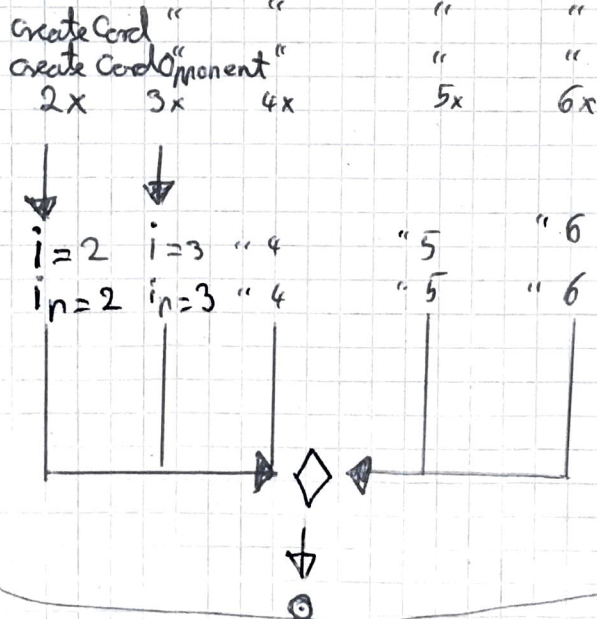 createCard " " " "
create CardOponent" " "
2x 3x 4x 5x 6x
i=2 i=3 " 4 " 5 " 6
in=2 in=3 " 4 " 5 " 6